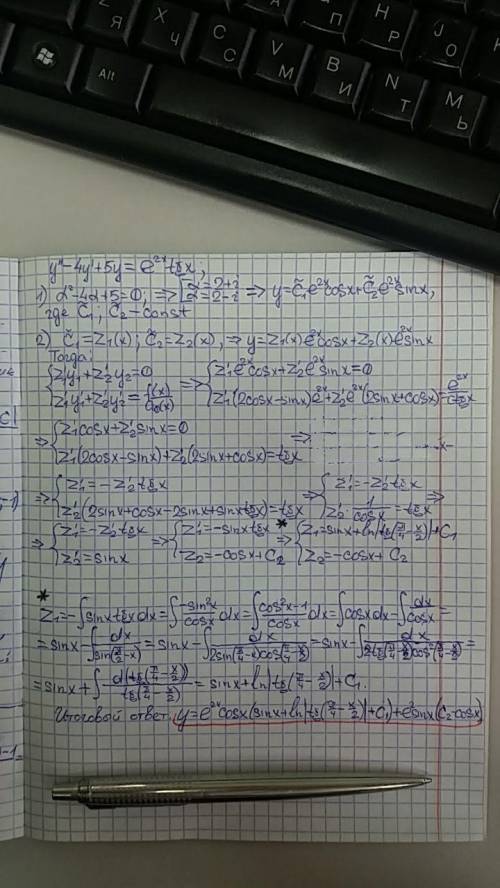 Z Я
X Ч
C С
V М
B И
N Т
M Ь
Alt
П
H Р
J О
K
y'' - 4y' + 5y = e^{2x} tg x;
1) α² - 4α + 5 = 0; ⇒ [α = 2+i α = 2-i ⇒ y = C̃₁e^{2x}cosx + C̃₂e^{2x}sinx,
где C̃₁, C̃₂ - const
2) C̃₁ = Z₁(x); C̃₂ = Z₂(x), ⇒ y = Z₁(x)e^{2x}cosx + Z₂(x)e^{2x}sinx
Тогда:
{Z₁'y₁ + Z₂'y₂ = 0 ⇒ {Z₁'e^{2x}cosx + Z₂'e^{2x}sinx = 0
{Z₁'y₁' + Z₂'y₂' = f(x)/a₀(x) {Z₁'(2cosx - sinx)e^{2x} + Z₂'e^{2x}(2sinx + cosx) =
⇒ {Z₁'cosx + Z₂'sinx = 0 ⇒
{Z₁'(2cosx - sinx) + Z₂'(2sinx + cosx) = tg x
⇒ {Z₁' = -Z₂' tg x ⇒ {Z₁' = -Z₂' tg x ⇒
{Z₂'(2sinx + cosx - 2sinx + sinx tg x) = tg x {Z₂' · 1/cosx = tg x
⇒ {Z₁' = -Z₂' tg x ⇒ {Z₁' = -sinx tg x * ⇒ {Z₁ = sinx + ln|tg(π/4 - x/2)| + C₁
{Z₂' = sinx {Z₂ = -cosx + C₂ {Z₂ = -cosx + C₂
*
Z₁ = -∫sinx tg x dx = ∫(-sin²x/cosx)dx = ∫((cos²x - 1)/cosx)dx = ∫cosx dx - ∫dx/cosx =
= sinx - ∫dx/sin(π/2 - x) = sinx - ∫dx/(2sin(π/4 - x/2)cos(π/4 - x/2)) = sinx - ∫dx/(2tg(π/4 - x/2)cos²(π/4 - x/2)) =
= sinx + ∫d(tg(π/4 - x/2))/tg(π/4 - x/2) = sinx + ln|tg(π/4 - x/2)| + C₁.
Итоговый ответ: y = e^{2x}cosx(sinx + ln|tg(π/4 - x/2)| + C₁) + e^{2x}sinx(C₂ - cosx)